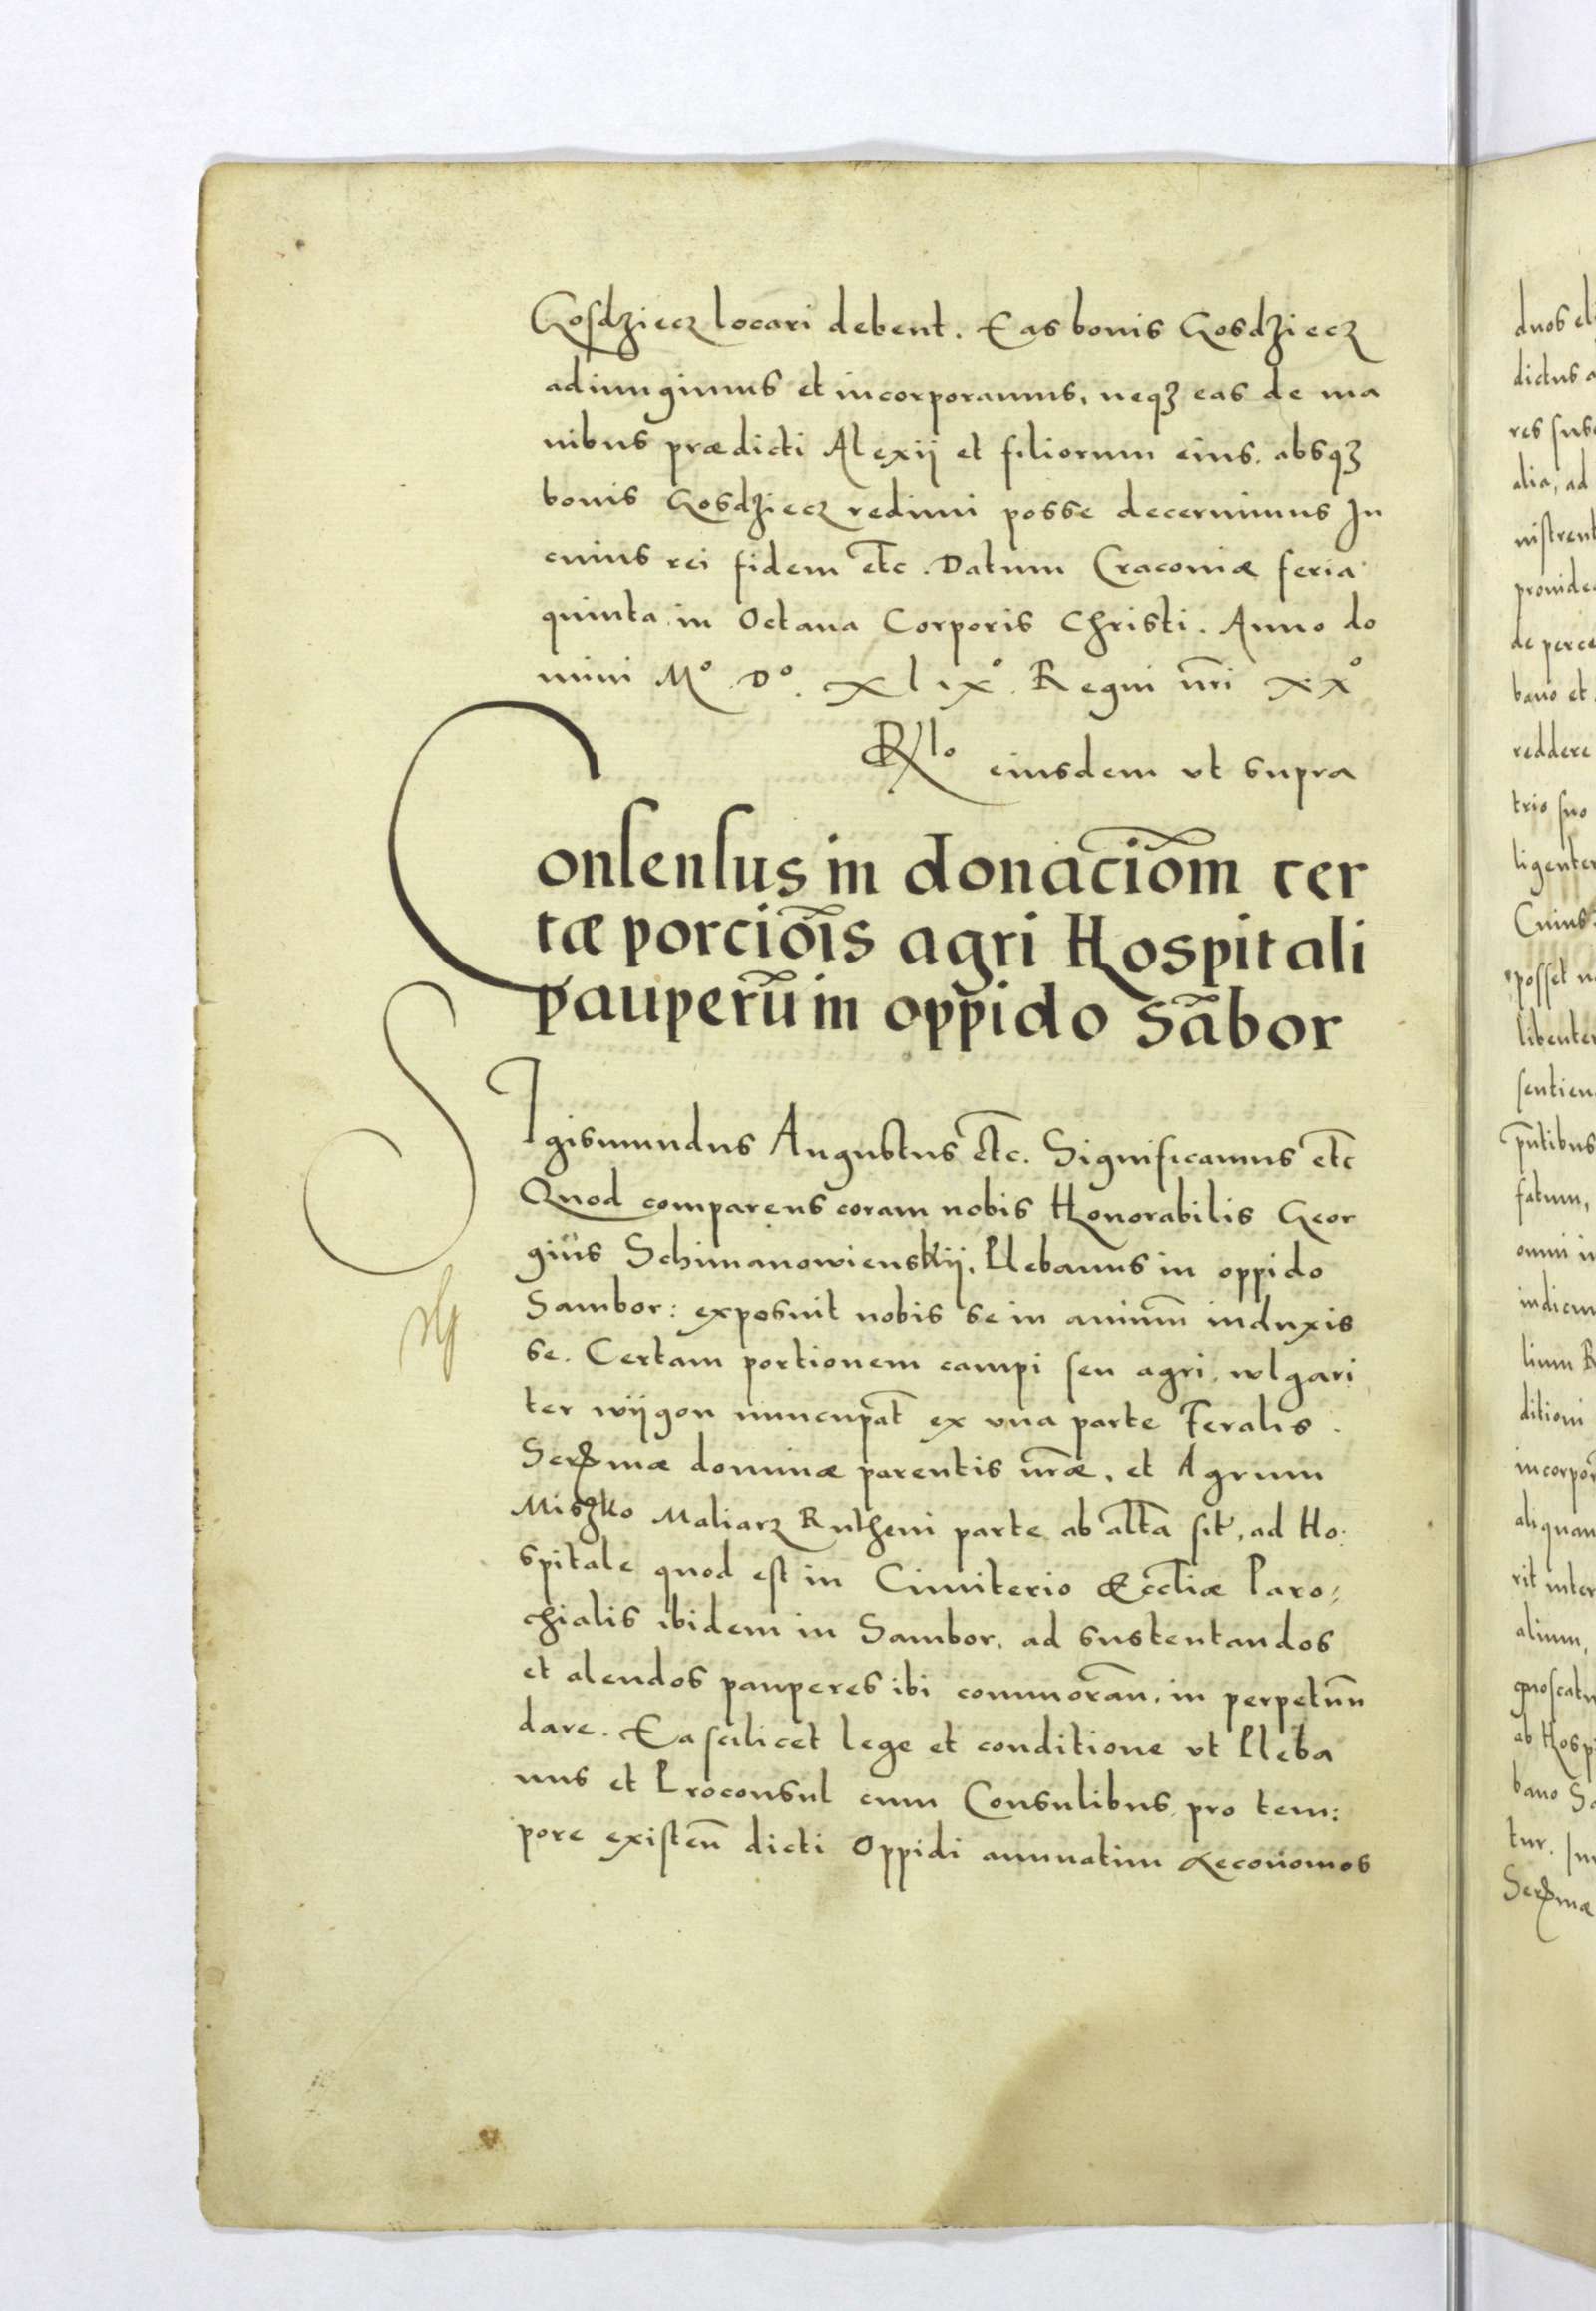 Gosdziecz locari debent. Eas bonis Gosdziecz
adiungimus et incorporamus, neqꝫ eas de ma
nibus prædicti Alexij et filiorum eius. absqꝫ
bonis Gosdziecz redimi posse decernimus In
cuius rei fidem etc̄. Datum Cracoviæ feria
quinta in Octava Corporis Christi. Anno do
mini Mº. Dº. xlıxº. Regni nr̄i xxº
Rlº eiusdem vt supra
Consensus in donacio͞m cer
tæ porcio͞is agri Hospitali
pauperū in oppido Sābor
SIgismundus Augustus etc̄. Significamus etc̄
Quod comparens coram nobis Honorabilis Geor
gius Schimanowienskij, Plebanus in oppido
Sambor: exposuit nobis se in animū induxis
se. Certam portionem campi seu agri, wlgari
ter wijgon nuncupat̄ ex vna parte Feralis.
Serꝰmæ dominæ parentis nr̄æ, et Agrum
Miszko Maliarz Rutheni parte ab alt̄a sit̄, ad Ho:
spitale quod est in Cimiterio Eccl̄iæ Paro:
chialis ibidem in Sambor, ad sustentandos
et alendos pauperes ibi commorān. in perpetuū
dare. Ea scilicet lege et conditione vt Pleba
nus et Proconsul cum Consulibus pro tem:
pore existeñ dicti Oppidi annuatim Œconomos
duos el
dictus a
res sus
alia, ad
nistrent
provide
de perce
bano et
reddere
trio suo
ligenter
Cuius
posset n
libenter
sentien
pn̄tibus
fatum,
omni i
indicu
lium R
ditioni
incorpor
aliquam
rit inter
alium,
gnoscatu
ab Hosp
bano Sa
tur. In
Serꝰmæ